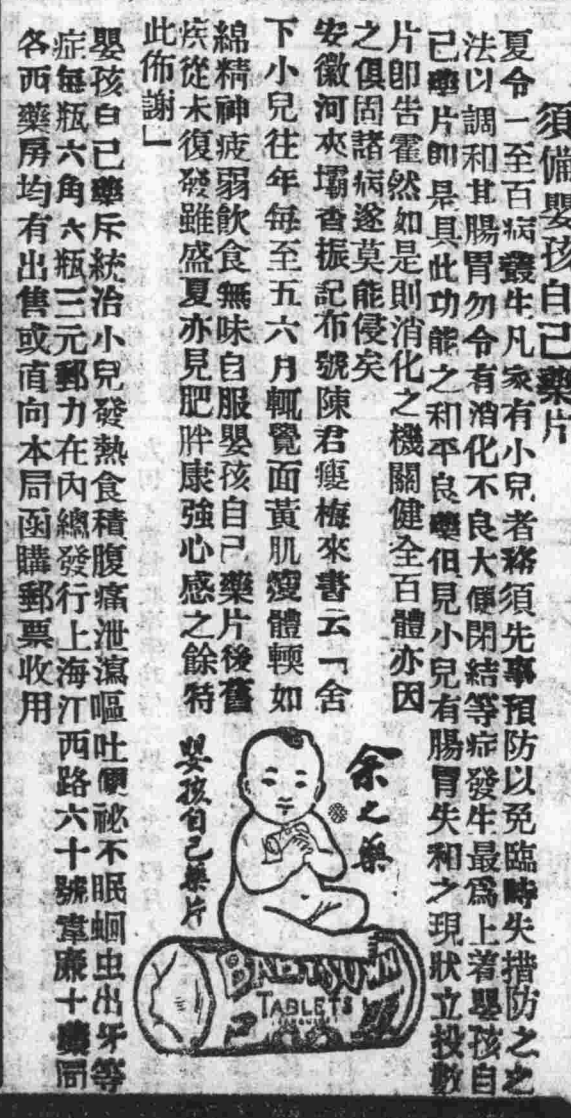 須備嬰孩自己藥片
夏令一至百病叢生凡家有小兒者務須先事預防以免臨時失措防之之
法以調和其腸胃勿令有消化不良大便閉結等症發生最爲上着嬰孩自
己藥片卽是具此功能之和平良藥但見小兒有腸胃失和之現狀立投數
片卽告霍然如是則消化之機關健全百體亦因
之俱固諸病遂莫能侵矣
安徽河夾壩查振記布號陳君瘦梅來書云「舍
下小兒往年每至五六月輒覺面黃肌瘦體輭如
綿精神疲弱飲食無味自服嬰孩自己藥片後舊
疾從未復發雖盛夏亦見肥胖康強心感之餘特
此佈謝」
嬰孩自己藥片統治小兒發熱食積腹痛泄瀉嘔吐便祕不眠蛔虫出牙等
症每瓶六角六瓶三元郵力在內總發行上海江西路六十號韋廉士藥局
各西藥房均有出售或直向本局函購郵票收用
余之藥
嬰孩自己藥片
BABY'S OWN
TABLETS